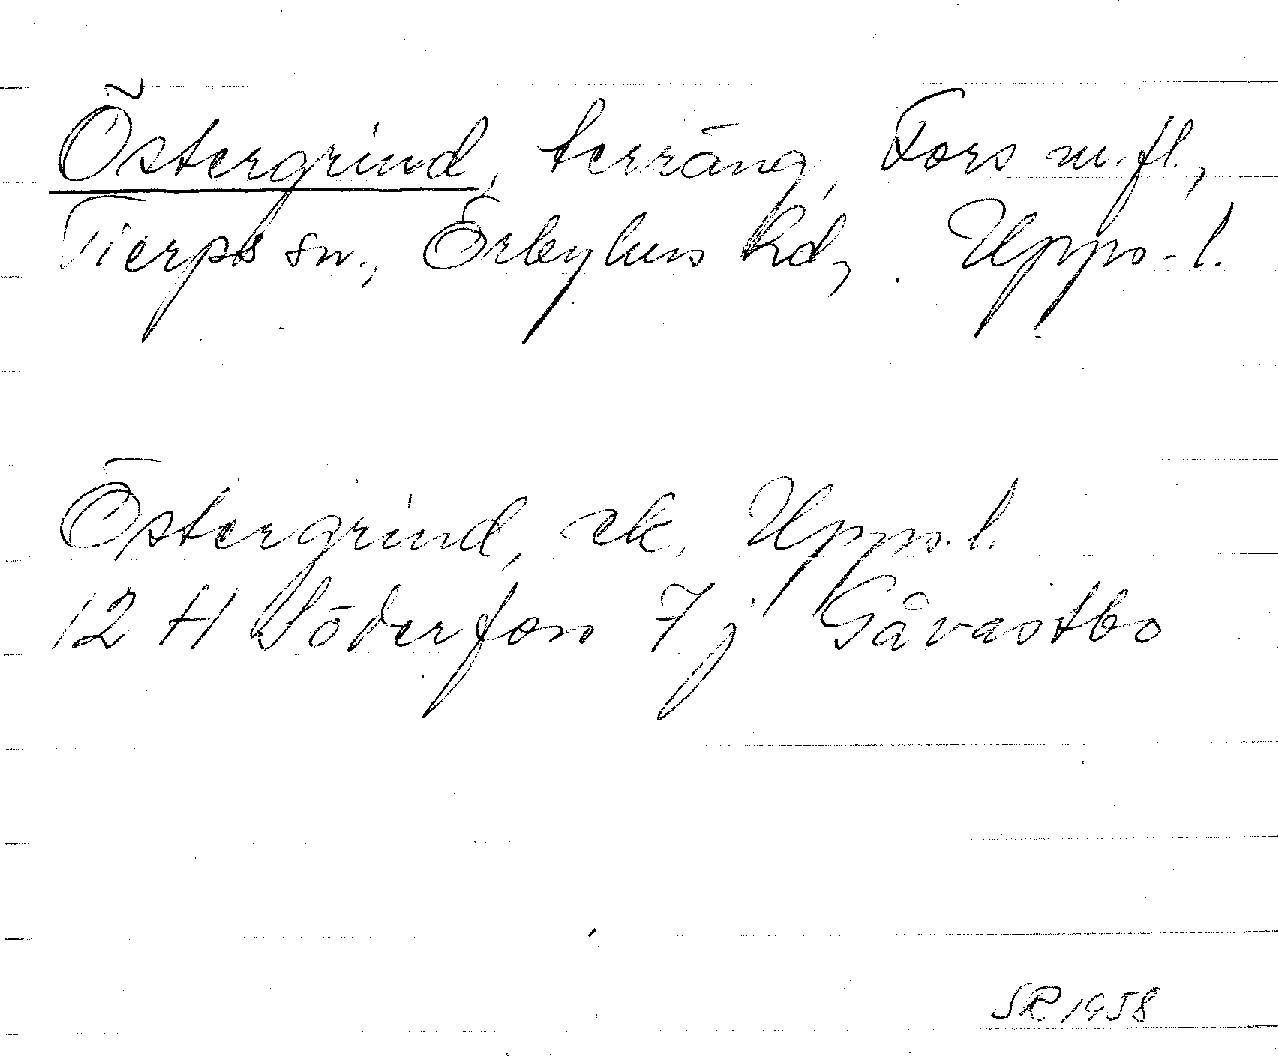 Östergrind, terräng, Fors m.fl.,
Tierps sn., Örbyhus hd, Upps.l.
Östergrind, ek. Upps.l.
12 H Söderfors 7 j Gåvastbo
SR 1958